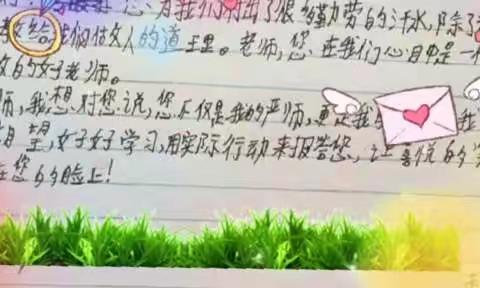 您、为我们付出了很多勤劳的汗水,除了
教给我们做人的道理。老师,您、在我们心目中是一
敬的好老师。
师,我想对您说,您不仅是我的严师,更是我 我
望,好好学习,用实际行动来报答您,让喜悦的笑
在您的脸上!